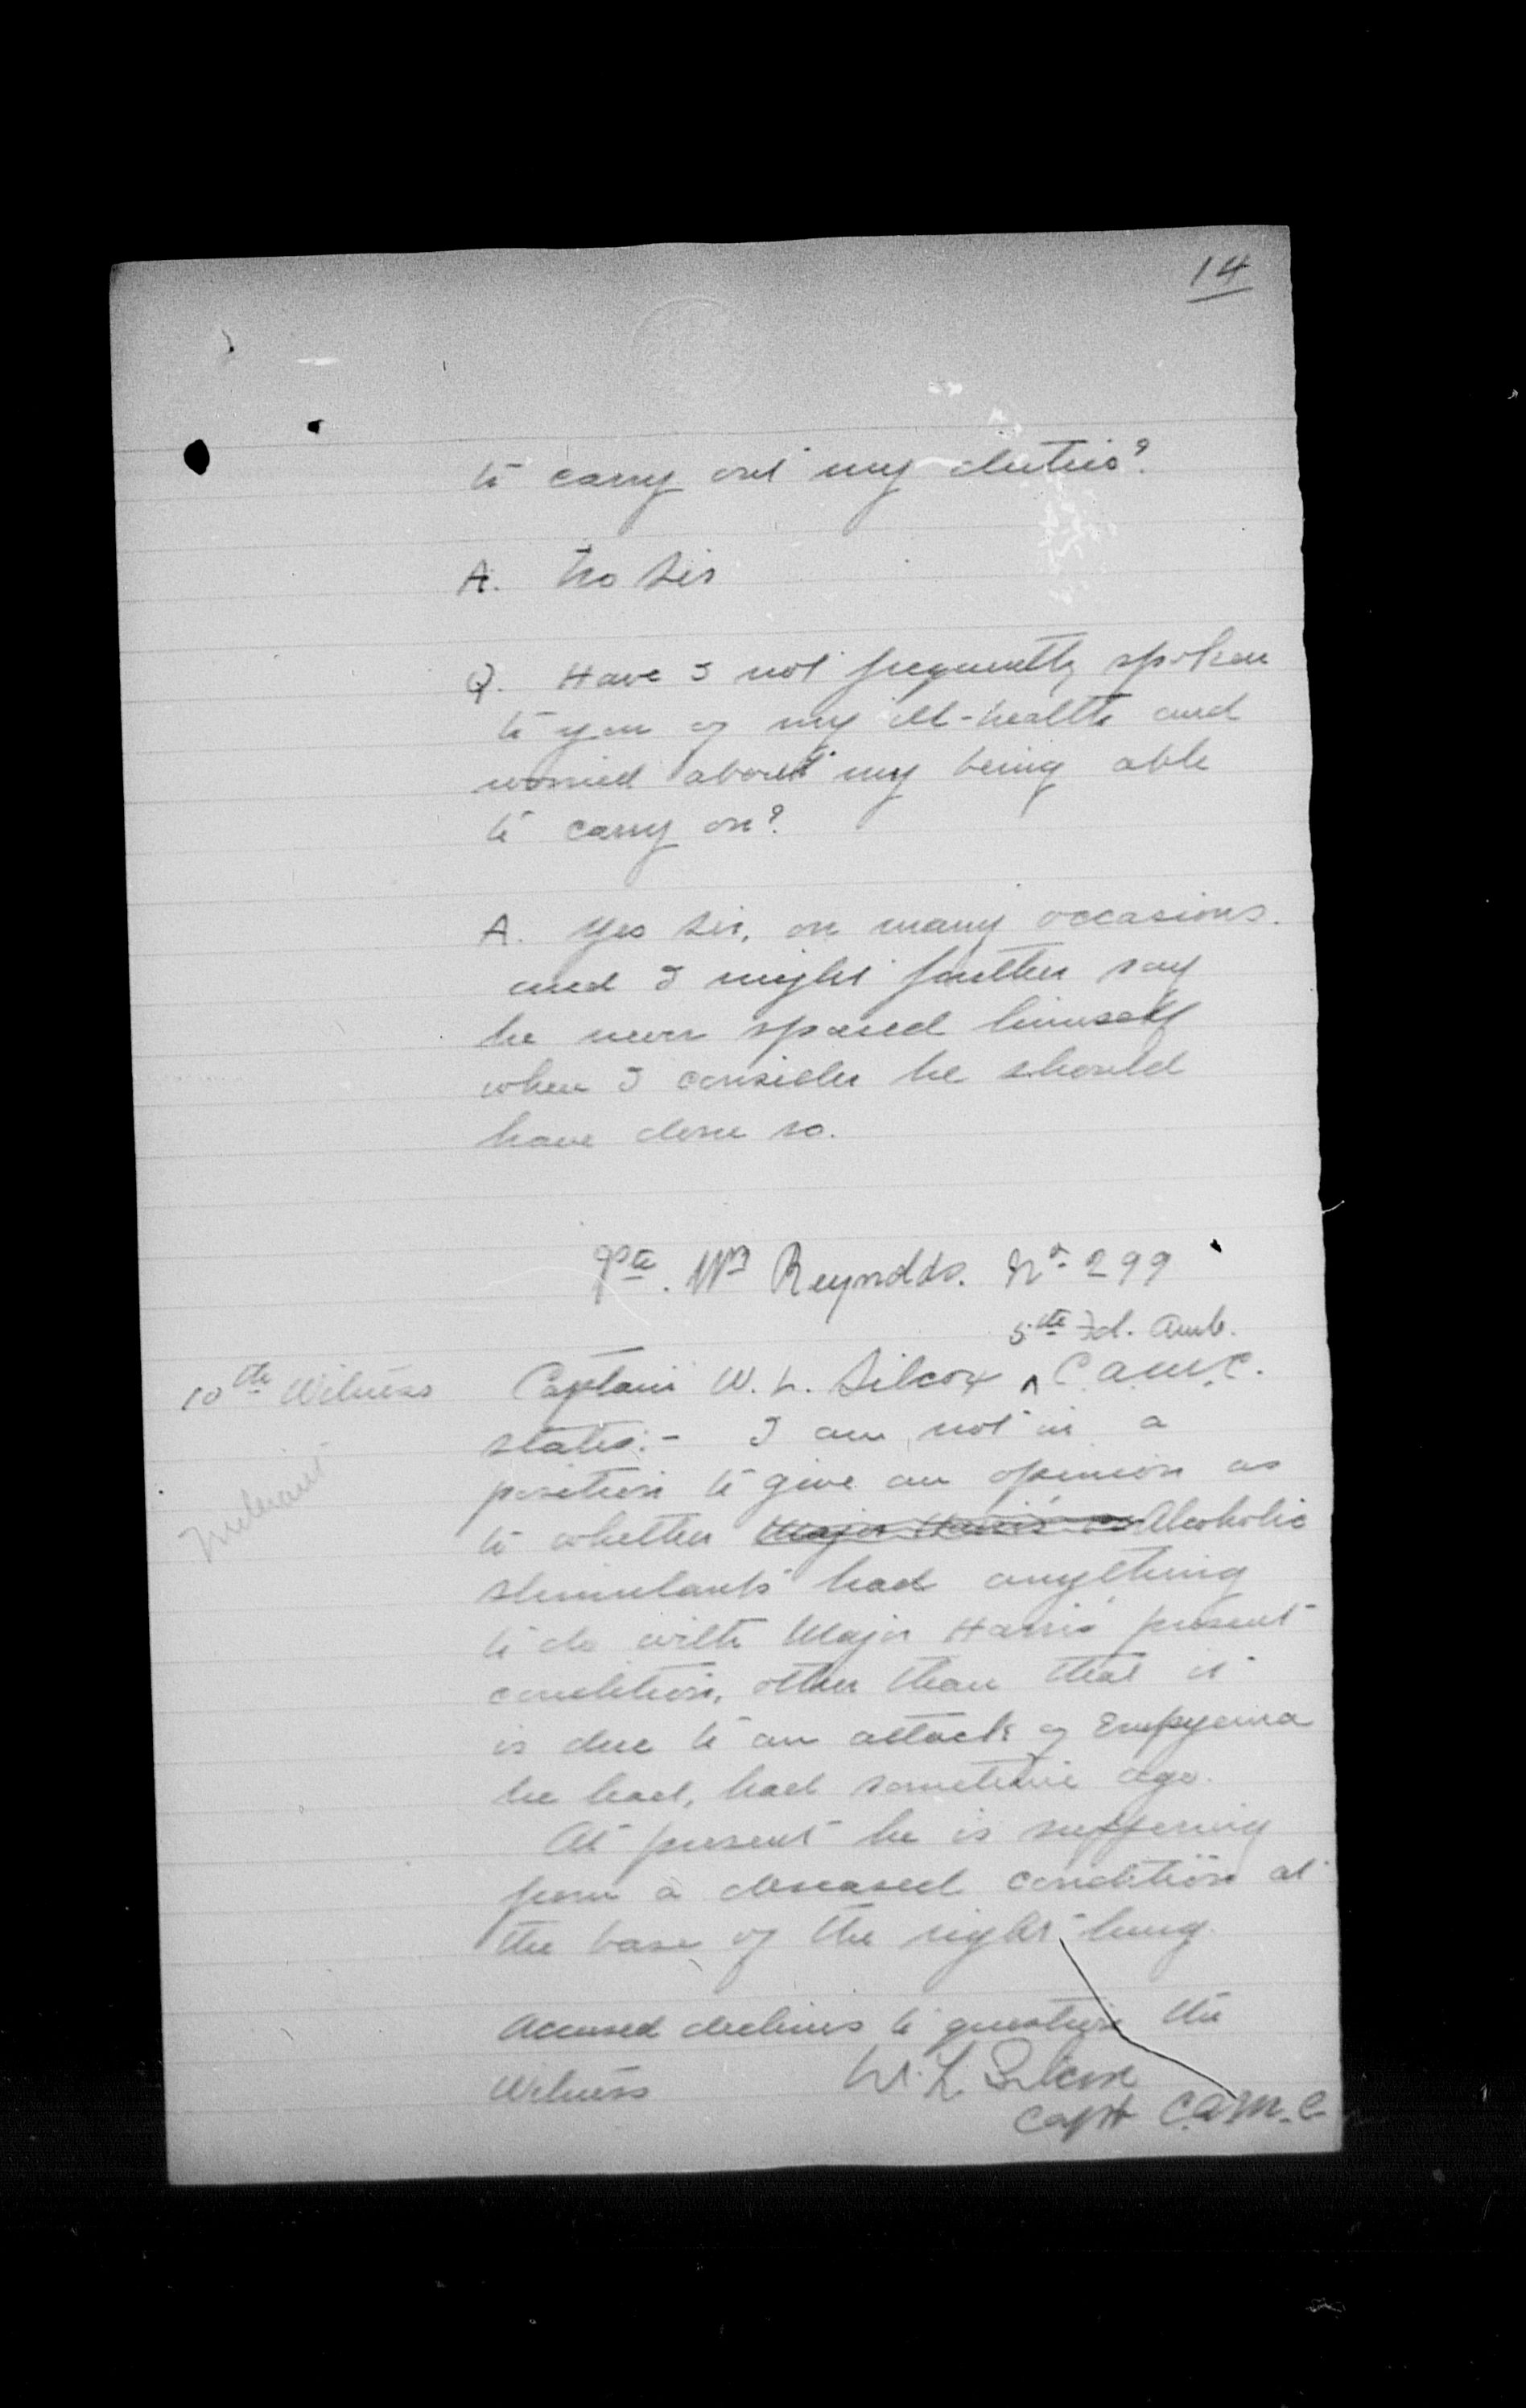 14
to carry out my duties?
A. No Sir
Q. Have I not frequently spoken
to you of my ill-health and
worried about my being able
to carry on?
A. Yes Sir, on many occasions.
and I might further say
he never spared himself
when I consider he should
have done so.
Pte. Wm Reynolds. No 299
5th Fd. Amb.
10th Witness Captain W. L. Silcox ^ C.A.M.C.
states:- I am not in a
position to give an opinion as
to whether Major Harris Alcoholic
stimulants had anything
to do with Major Harris' present
condition, other than that it
is due to an attack of Empyema
he had, had sometime ago.
At present he is suffering
from a diseased condition at
the base of the right lung.
Accused declines to question the
Witness W. L. Silcox
Capt C.A.M.C